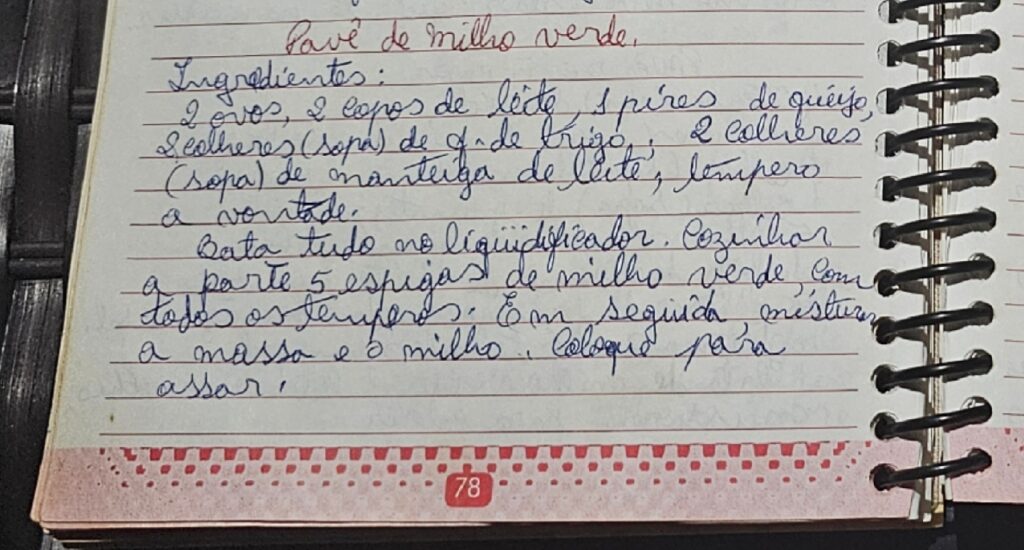 Pavê de milho verde.
Ingredientes:
2 ovos, 2 copos de leite, 1 pires de queijo,
2 colheres (sopa) de f. de trigo, 2 colheres
(sopa) de manteiga de leite, tempero
a vontade.
Bata tudo no liqüidificador. Cozinhar
a parte 5 espigas de milho verde, com
todos os temperos. Em seguida, misture
a massa e o milho. Coloque para
assar.
78